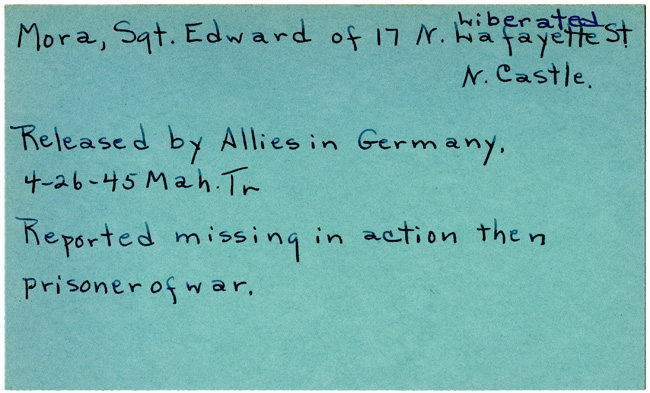 Liberated
Mora, Sgt. Edward of 17 N. Lafayette St.
N. Castle.
Released by Allies in Germany.
4-26-45 Mah. Tr
Reported missing in action then
prisoner of war.